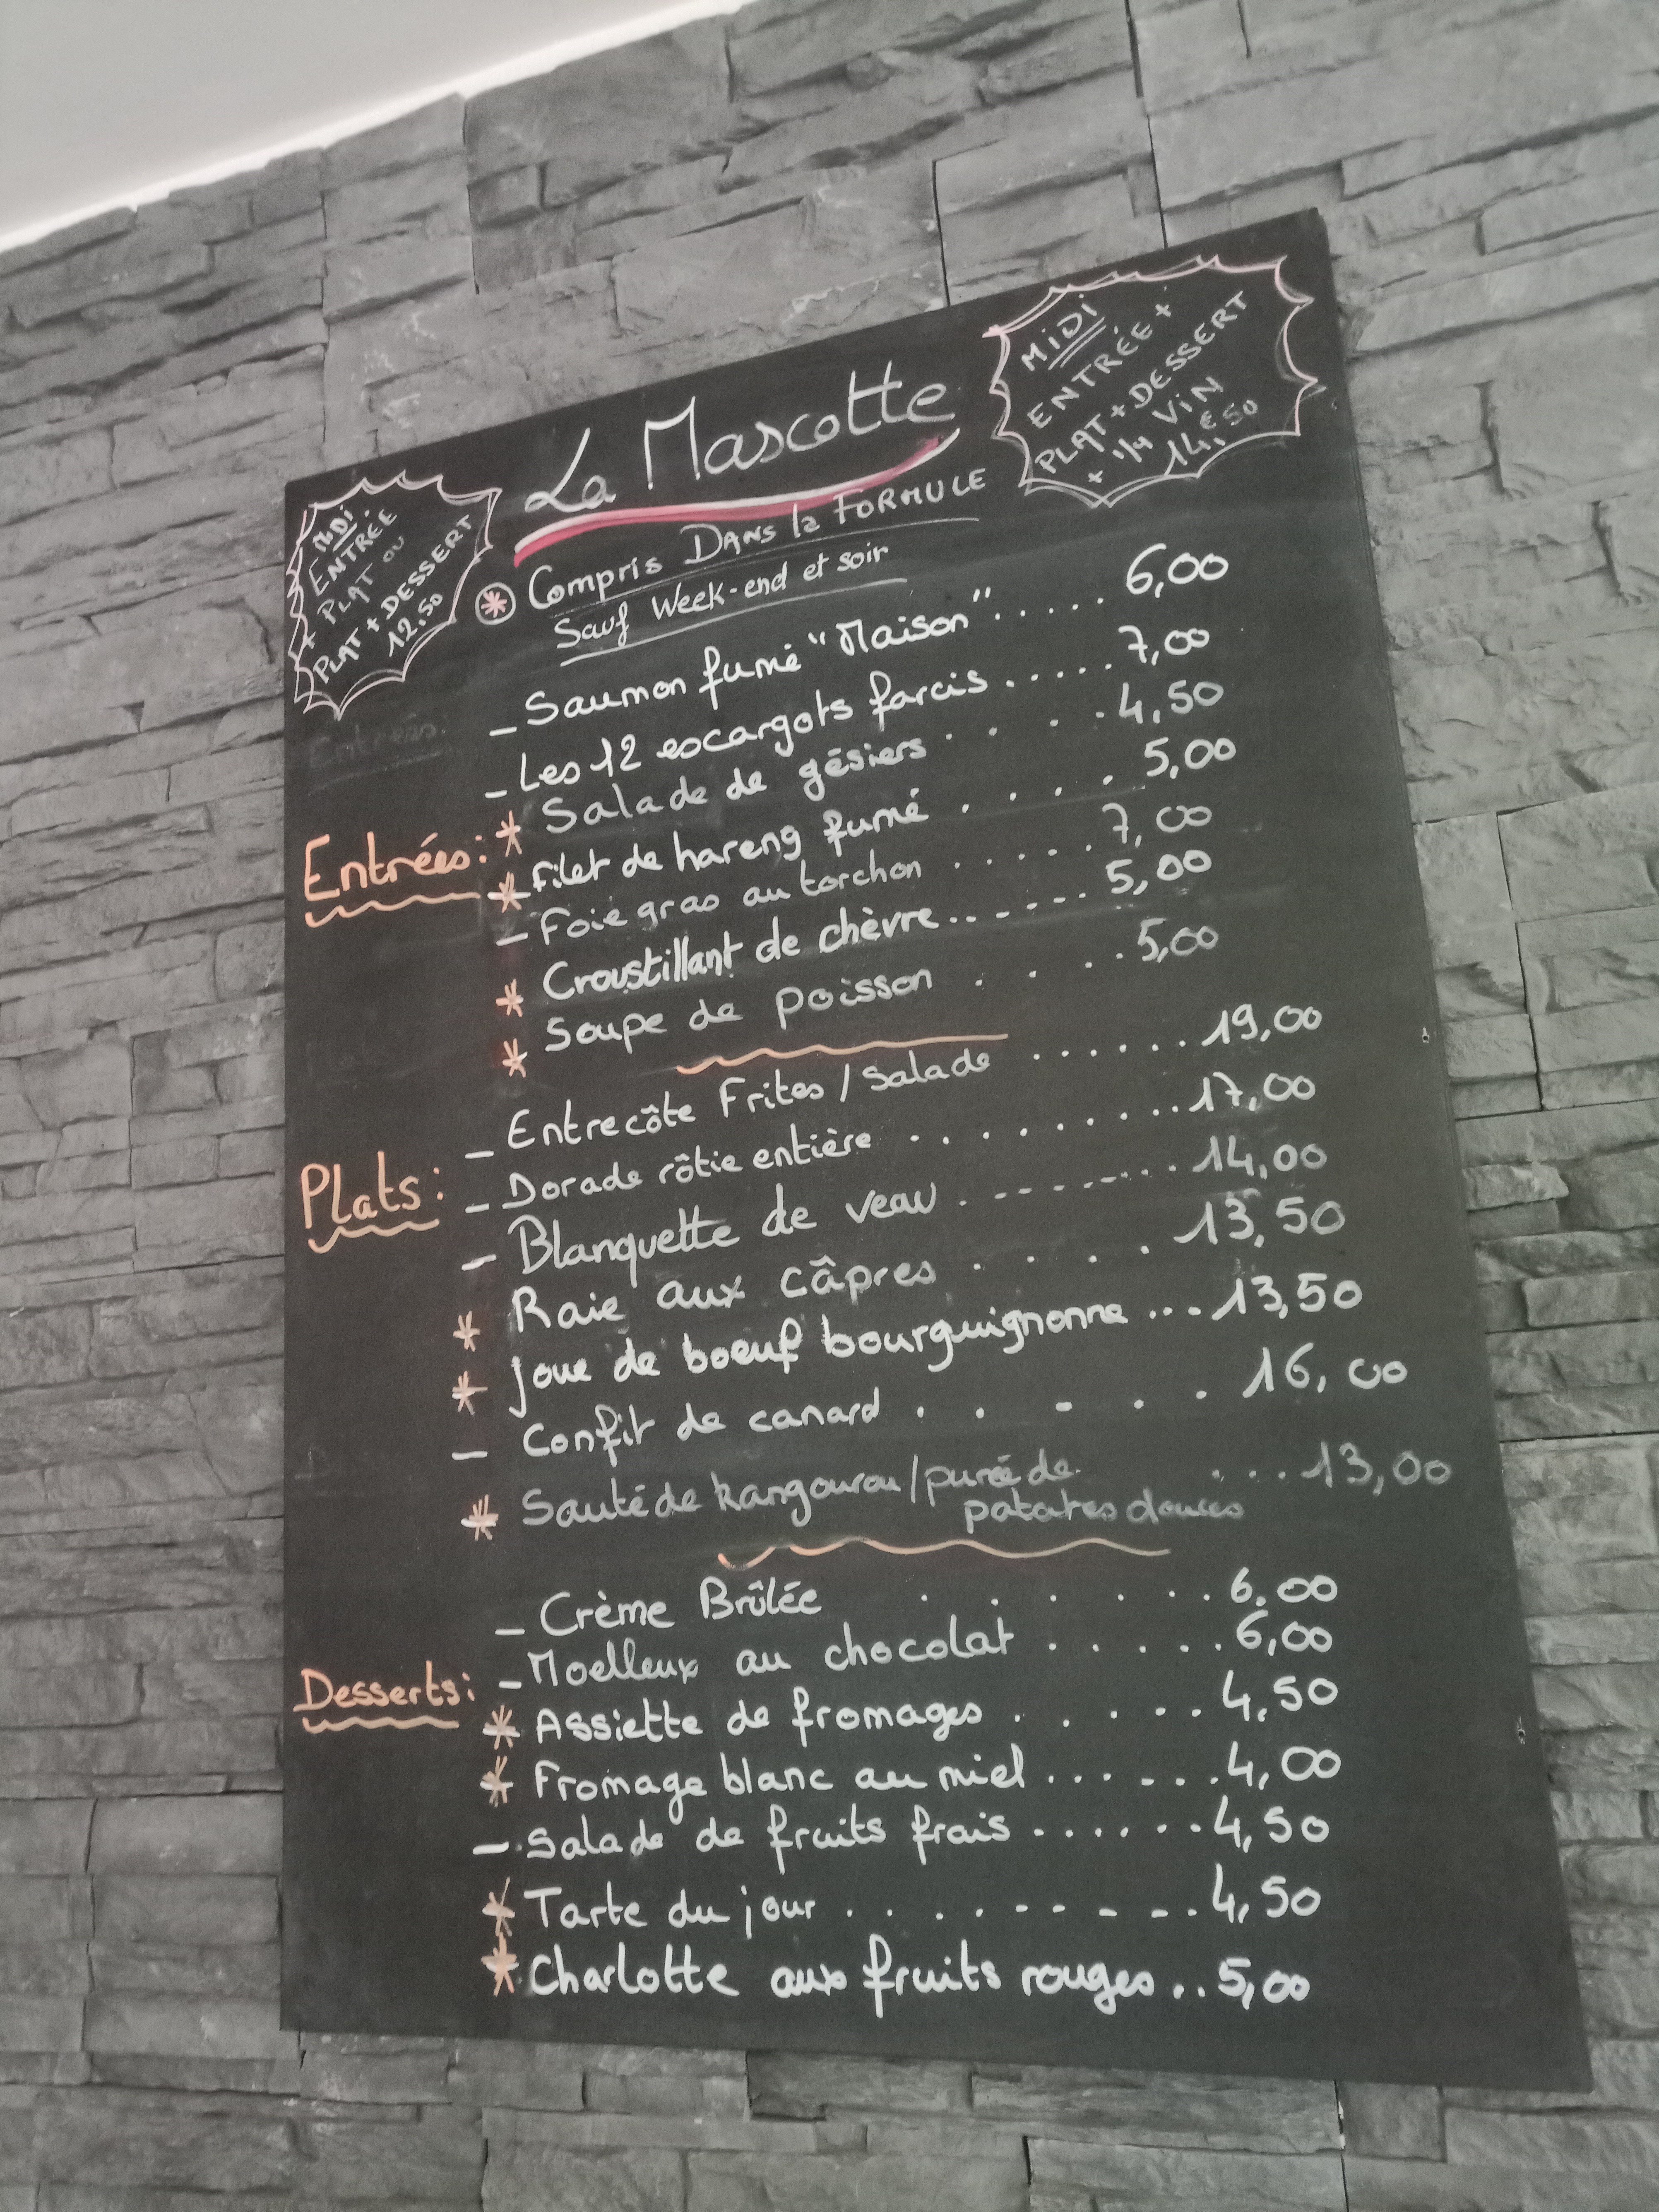 La Mascotte
MiDi
ENTRÉE +
PLAT + DESSERT
+ 1/4 ViN
14,€50
MiDi:
ENTRÉE
+ PLAT ou
PLAT + DESSERT
12.50
* Compris DANS la FORMULE
Sauf Week-end et soir
Entrées:
Entrées:
_ Saumon fumé "Maison" ..... 6,00
_ Les 12 escargots farcis ..... 7,00
* Salade de gésiers . . . . 4,50
* Filet de hareng fumé . . . . 5,00
_ Foie gras au torchon ...... 7,00
* Croustillant de chèvre ....... 5,00
* Soupe de poisson . . . . 5,00
Plats:
_ Entrecôte Frites / Salade ...... 19,00
_ Dorade rôtie entière ......... 17,00
_ Blanquette de veau . ------... 14,00
* Raie aux câpres . . . . 13,50
* joue de boeuf bourguignonne ... 13,50
_ Confit de canard . . - . . 16,00
* Sauté de kangourou / purée de ... 13,00
patates douces
Desserts:
_ Crème Brûlée . . . . . . 6.00
_ Moelleux au chocolat ...... 6,00
* Assiette de fromages ...... 4,50
* Fromage blanc au miel ....... 4,00
- Salade de fruits frais ....... 4,50
* Tarte du jour ......... 4,50
* Charlotte aux fruits rouges .. 5,00